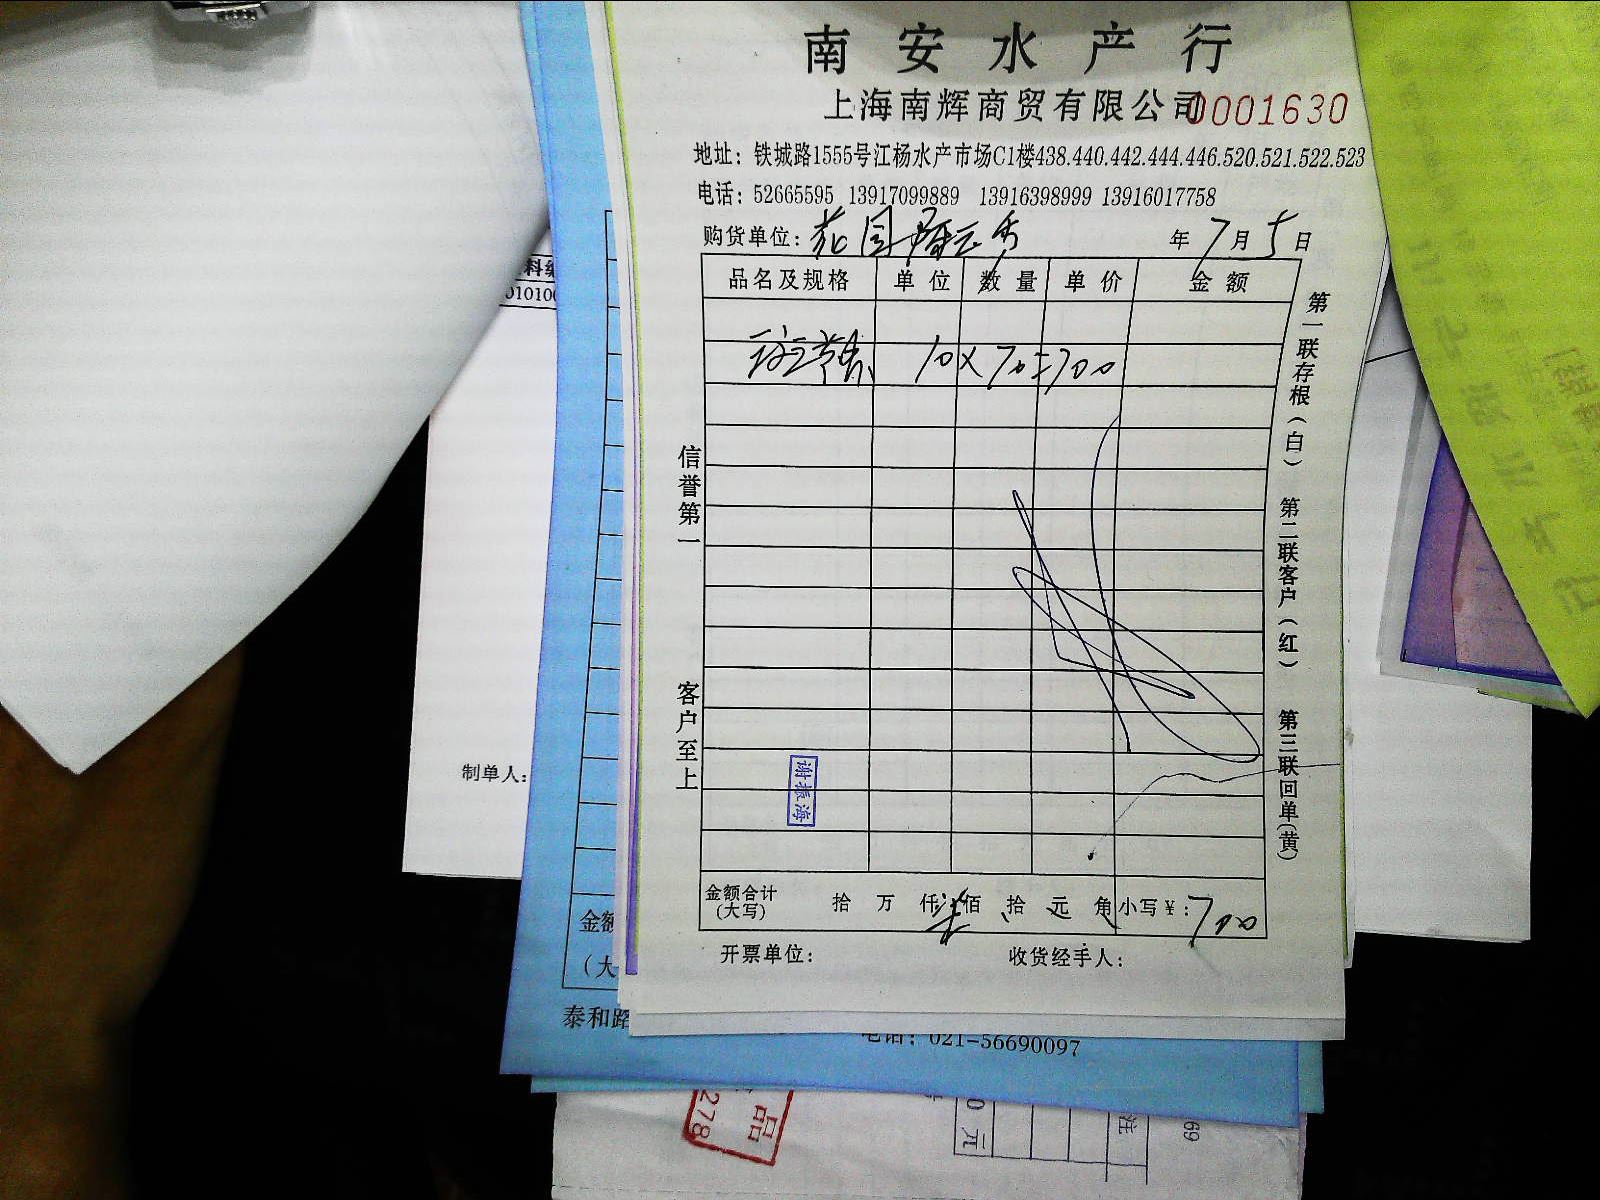 南安水产行
上海南辉商贸有限公司
0001630
地址：铁城路1555号江杨水产市场C1楼438.440.442.444.446.520.521.522.523
电话：52665595 13917099889 13916398999 13916017758
购货单位：花园 年7月5日
品名及规格 单位 数量 单价 金额
10×70=700
信誉第一
客户至上
第一联存根（白） 第二联客户（红） 第三联回单（黄）
谢振海
金额合计（大写） 拾 万 仟柒佰 拾 元 角 小写￥：700
开票单位： 收货经手人：
制单人：
料编
金额
（大
泰和路
电话：021-56690097
品
278
0元
注
69